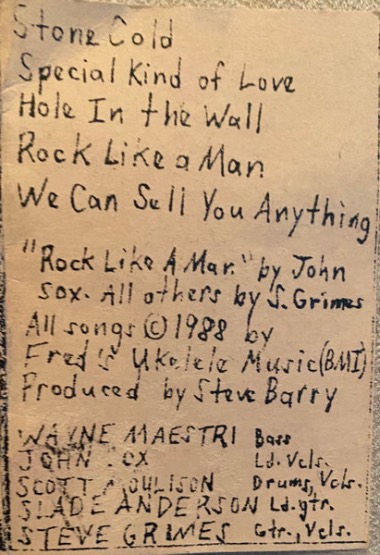 Stone Cold
Special Kind of Love
Hole In the Wall
Rock Like a Man
We Can Sell You Anything
"Rock Like A Man" by John
sox. All others by S. Grimes
All songs © 1988 by
Fred's Ukelele Music (BMI)
Produced by Steve Barry
WAYNE MAESTRI Bass
JOHN Ld. Vcls.
SCOTT Drums, Vcls.
SLADE ANDERSON Ld. gtr.
STEVE GRIMES Gtr., Vcls.